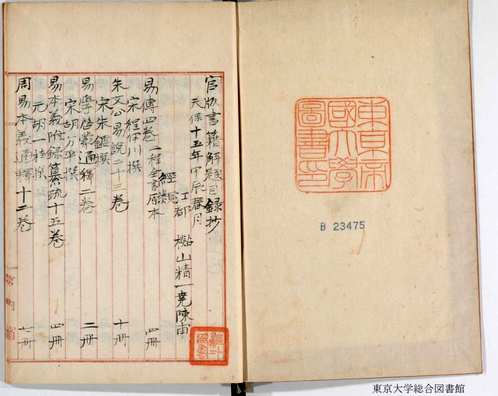 東京帝國大學圖書印
B 23475
官版書籍解題目録抄
天保十五年甲辰春月
江都 山精一堯陳甫
經部
易傳四卷 二程全書原本 四冊
宋程伊川撰
朱文公易說二十三卷 十冊
宋朱鑑撰
易學啓蒙通釋二卷 二冊
宋胡方平撰
易本義附録纂疏十五卷 四冊
元胡一桂撰
周易本義通釋十二卷 冊
東京大学総合図書館